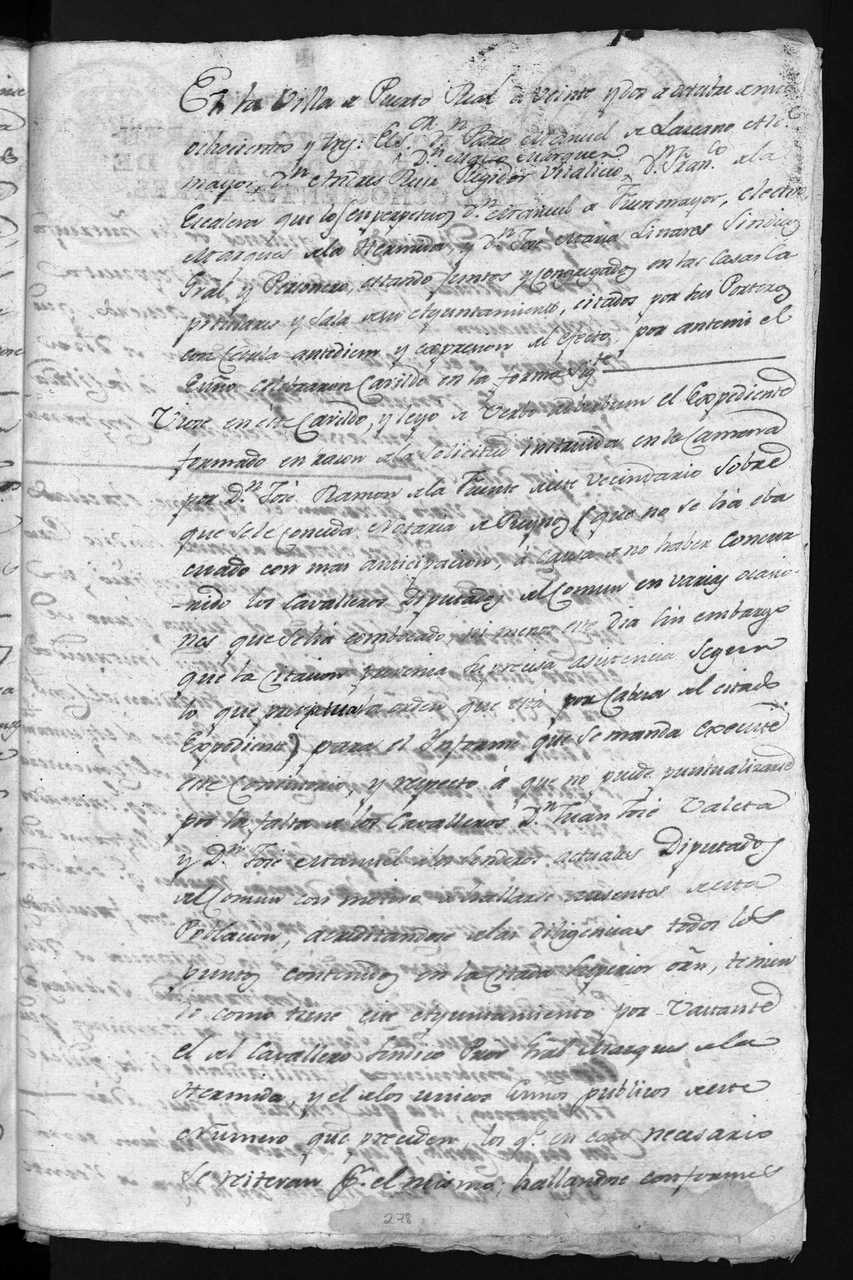 En la Villa de Puerto Real a veinte y dos de octubre de mil
ochocientos y tres: El S. Dn Pedro Manuel de Lazcano Alc.
Dn Marquez
mayor, Dn Andres Ruiz Regidor Vitalicio, Dn Franco de la
Escalera que lo es perpetuo Dn Manuel de Fuenmayor, electo
Marques de la Hermida, y Dn Jose Maria Linares Sindicos
Gral y Personero, estando juntos y congregados en las Casas Ca
pitulares y Sala de su Ayuntamiento, citados por sus Porteros
con Cedula antediem y expresion del efecto, por antemi el
Esno celebraron Cavildo en la forma sigte
Viose en este Cavildo, y leyo de Verbo adverbum el Expediente
formado en razon de la Solicitud introducida en la Camara
por Dn José Ramon de la Fuente de este vecindario sobre
que se le conceda Notaria de Reynos (que no se há eba
cuado con mas anticipacion, á causa de no haber concur
rido los Cavalleros Diputados del Comun en varias ocasio
nes que se há combocado, ni menos este dia sin embargo
que la Citacion prevenia su precisa asistencia segun
lo que la orden que está por Cabeza del citado
Expediente) para el Informe que se manda execute
este Consistorio, y respecto á que no puede puntualizarse
por la falta de los Cavalleros Dn Juan José Valeta
y Dn José Manuel de los actuales Diputados
del Comun con motivo de hallarse ausentes de esta
Poblacion, acreditandose de las diligencias todos los
puntos contenidos en la Citada Superior orn, tenien
do como tiene este Ayuntamiento por Vastante
el del Cavallero Sindico Pror Gral Marques de la
Hermida, y el de los unicos Esnos publicos de este
Numero que preceden, los qe en caso necesario
se reiteran pr el mismo; hallandose conformes
278